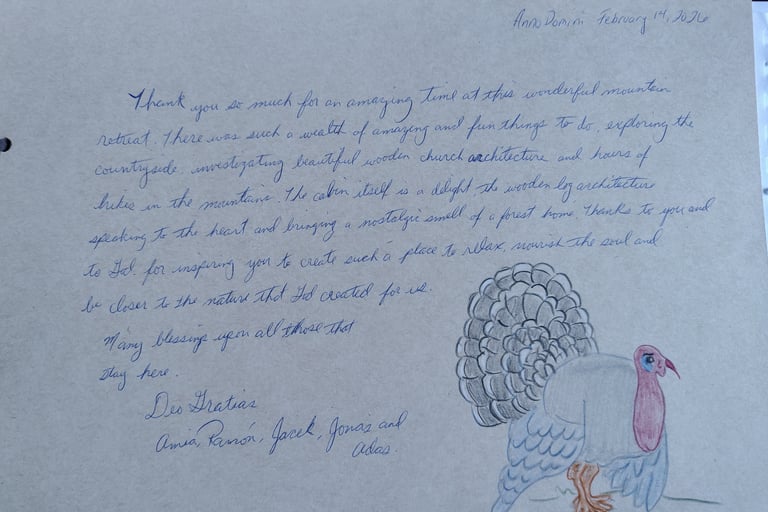 Anno Domini February 14, 2026
Thank you so much for an amazing time at this wonderful mountain
retreat. There was such a wealth of amazing and fun things to do, exploring the
countryside, investigating beautiful wooden church architecture, and hours of
hikes in the mountains. The cabin itself is a delight the wooden log architecture
speaking to the heart and bringing a nostalgic smell of a forest home. Thanks to you and
to God. for inspiring you to create such a place to relax, nourish the soul and
be closer to the nature that God created for us.
Many blessings upon all those that
stay here.
Deo Gratias
Ramón, Jacek, Jonas and
Adas.